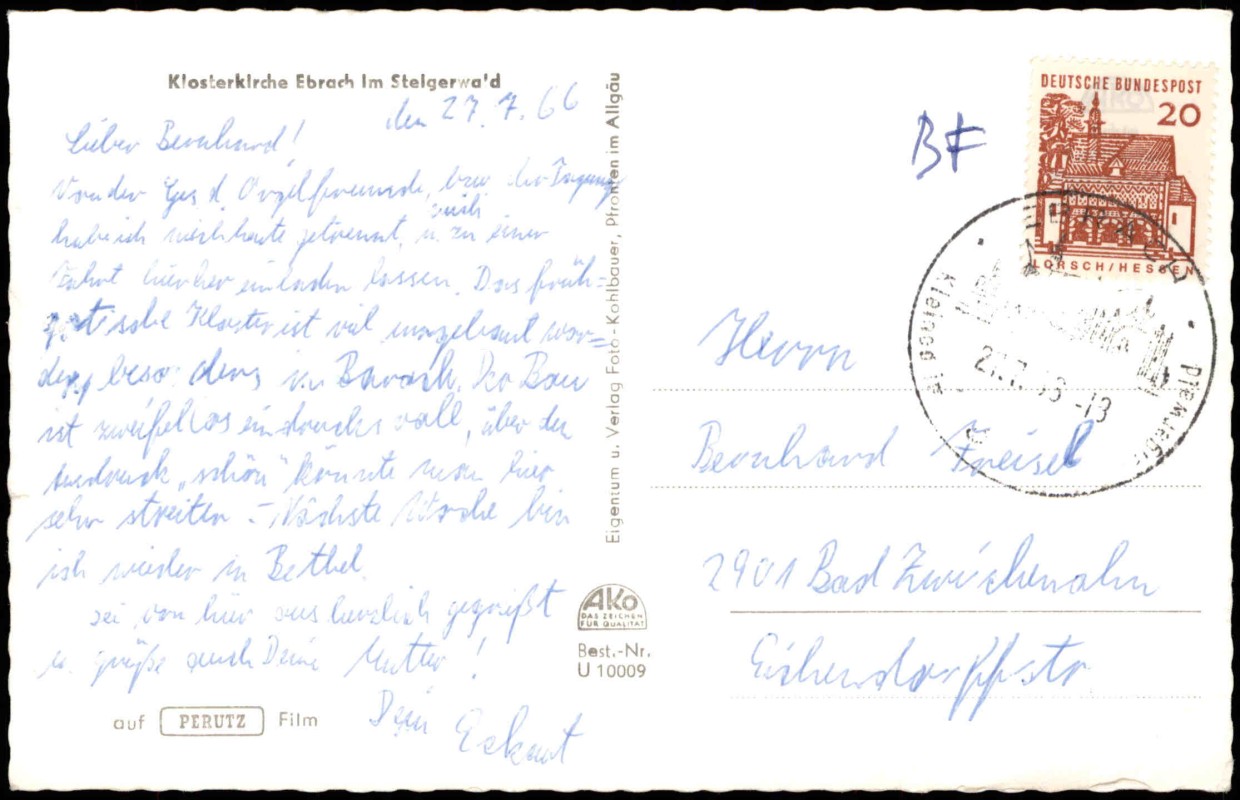 Klosterkirche Ebrach im Steigerwald
den 27.7.66
Lieber Bernhard!
Von der Ges. d. Orgelfreunde, bzw. der Tagung
habe ich mich heute getrennt, u. zu einer
Fahrt hierher einladen lassen. Das früh-
gotische Kloster ist viel umgebaut wor-
den, besonders im Barock. Der Bau
ist zweifellos eindrucksvoll, über den
Ausdruck „schön" könnte man hier
sehr streiten. – Nächste Woche bin
ich wieder in Bethel.
Sei von hier aus herzlich gegrüßt
u. grüße auch Deine Mutter!
Dein Eckart
auf PERUTZ Film
Eigentum u. Verlag Foto-Kohlbauer, Pfronten im Allgäu
AKO
DAS ZEICHEN
FÜR QUALITÄT
Best.-Nr.
U 10009
BF
DEUTSCHE BUNDESPOST
20
LORSCH/HESSEN
EBRACH
Kleinod im Steigerwald
27.7.66-13
Herrn
Bernhard Freisel
2901 Bad Zwischenahn
Eichendorffstr.